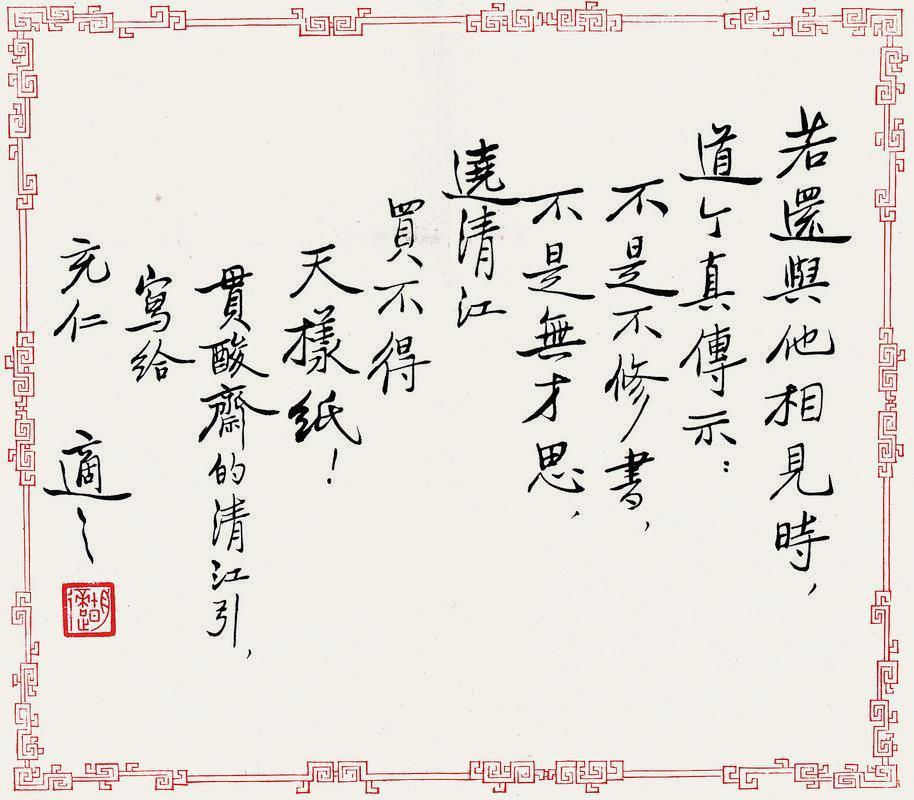 若還與他相見時，
道个真傳示：
不是不修書，
不是無才思，
遶清江
買不得
天樣紙！
貫酸齋的清江引，
寫給
充仁 適之
胡適